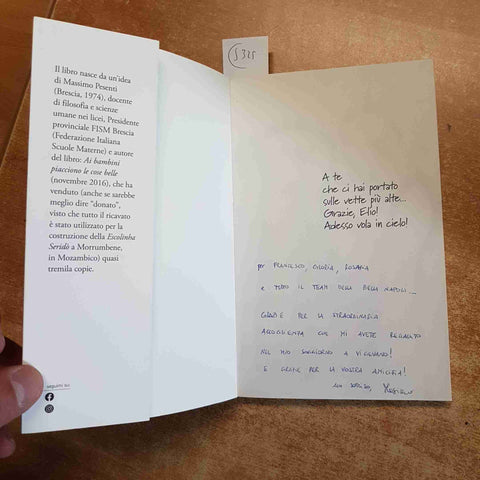 Il libro nasce da un'idea
di Massimo Pesenti
(Brescia, 1974), docente
di filosofia e scienze
umane nei licei, Presidente
provinciale FISM Brescia
(Federazione Italiana
Scuole Materne) e autore
del libro: Ai bambini
piacciono le cose belle
(novembre 2016), che ha
venduto (anche se sarebbe
meglio dire "donato",
visto che tutto il ricavato
è stato utilizzato per la
costruzione della Escolinha
Seridò a Morrumbene,
in Mozambico) quasi
tremila copie.
seguimi su
S325
A te
che ci hai portato
sulle vette più alte...
Grazie, Elio!
Adesso vola in cielo!
per FRANCESCO, GLORIA, ROSARIA
e TUTTO IL TEAM DELLA BELLA NAPOLI...
GRAZIE PER LA STRAORDINARIA
ACCOGLIENZA CHE MI AVETE REGALATO
NEL MIO SOGGIORNO A VIGEVANO!
E GRAZIE PER LA VOSTRA AMICIZIA!